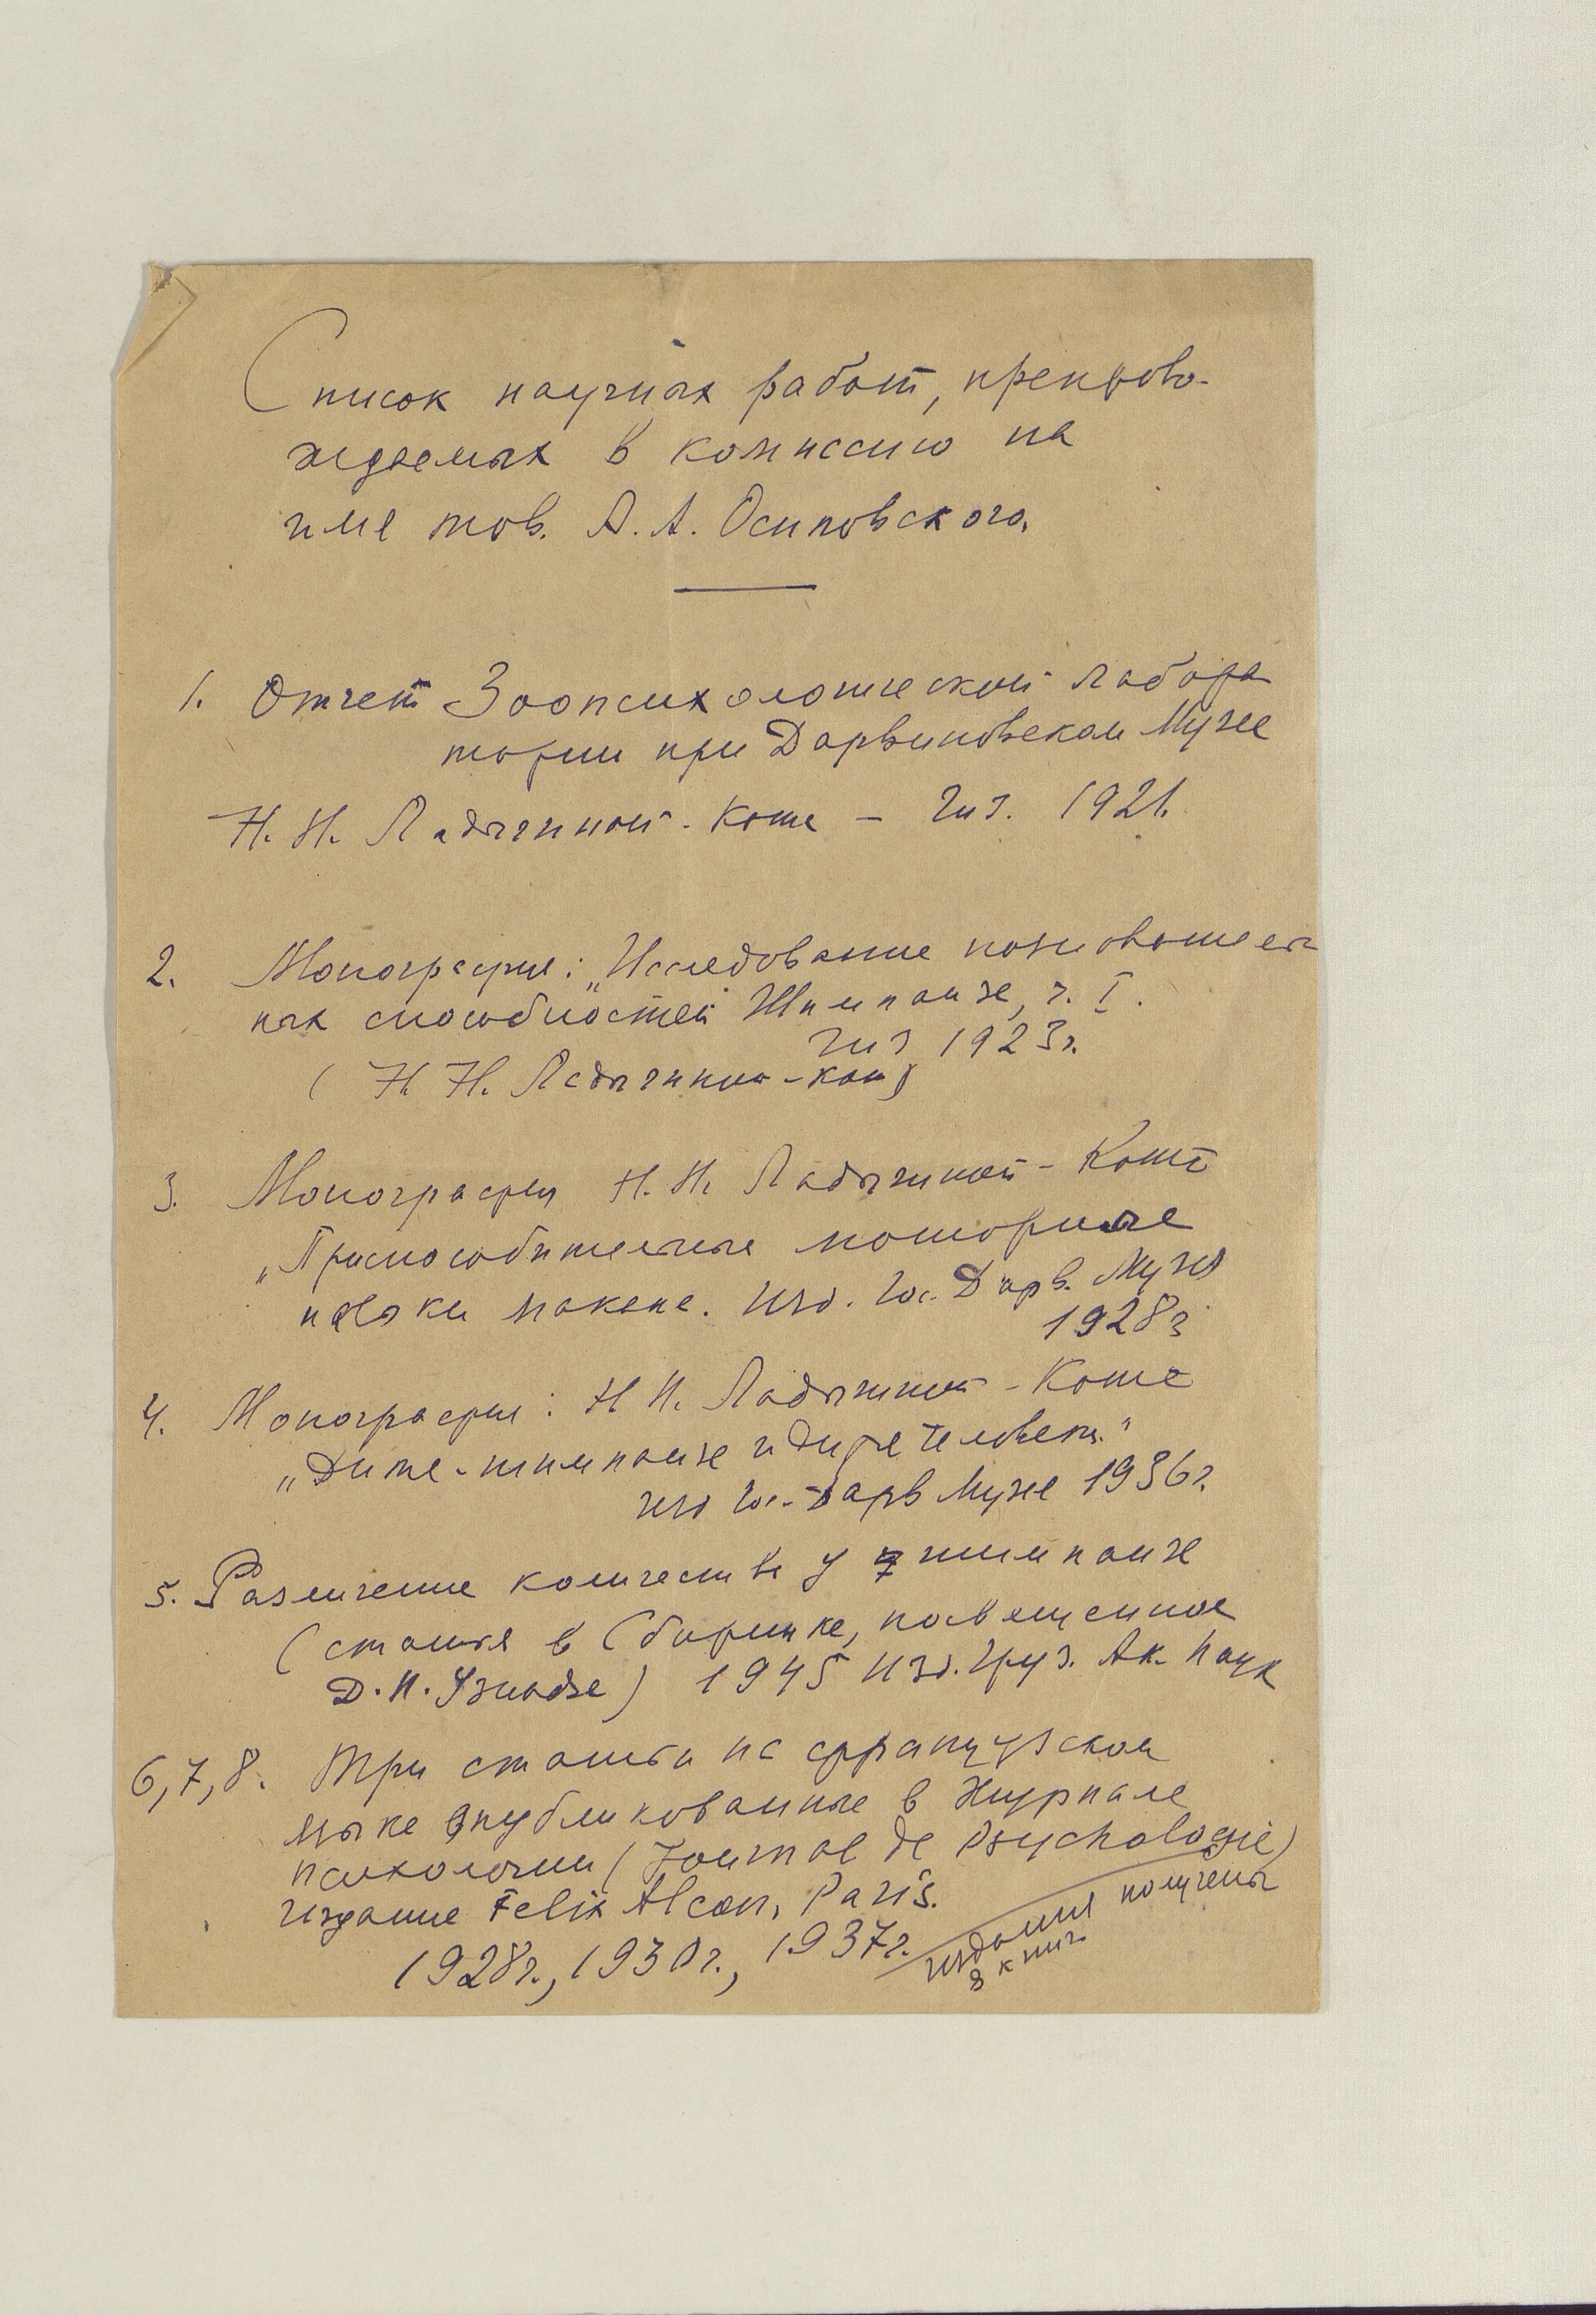 Список научных работ, препрово-
ждаемых в комиссию на
имя тов. А. А. Осиповского.
1. Отчет Зоопсихологической лабора
тории при Дарвиновском Музее
Н. Н. Ладыгиной-Котс – Гиз. 1921.
2. Монография: „Исследование познаватель
ных способностей Шимпанзе, ч. I.
Гиз 1923г.
(Н. Н. Ладыгиной-Котс)
3. Монография Н. Н. Ладыгиной-Котс
„Приспособительные моторные
навыки макака. Изд. Гос. Дарв. Музея
1928г
4. Монография: Н Н. Ладыгиной-Котс
„Дитя-шимпанзе и дитя человека"
изд Гос. Дарв Музея 1936г.
5. Различение количества у шимпанзе
(статья в Сборнике, посвященное
Д. Н. Узнадзе) 1945 Изд. Груз. Ак. Наук
6, 7, 8. Три статьи на французском
языке опубликованные в Журнале
психологии (Journal de Psychologie)
издание Felix Alcan, Paris.
1928г., 1930г., 1937г.
издания получены
8 книг